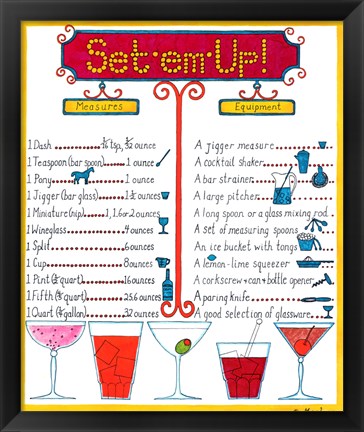 Set 'em Up!
Measures
Equipment
1 Dash........⅙ tsp, 1/32 ounce
1 Teaspoon (bar spoon)....⅛ ounce
1 Pony..........1 ounce
1 Jigger (bar glass)......1½ ounces
1 Miniature (nip)....1, 1.6 or 2 ounces
1 Wineglass..........4 ounces
1 Split..........6 ounces
1 Cup..........8 ounces
1 Pint (⅛ quart)......16 ounces
1 Fifth (⅘ quart)......25.6 ounces
1 Quart (¼ gallon)......32 ounces
A jigger measure
A cocktail shaker
A bar strainer
A large pitcher
A long spoon or a glass mixing rod
A set of measuring spoons
An ice bucket with tongs
A lemon-lime squeezer
A corkscrew + can & bottle opener
A paring knife
A good selection of glassware